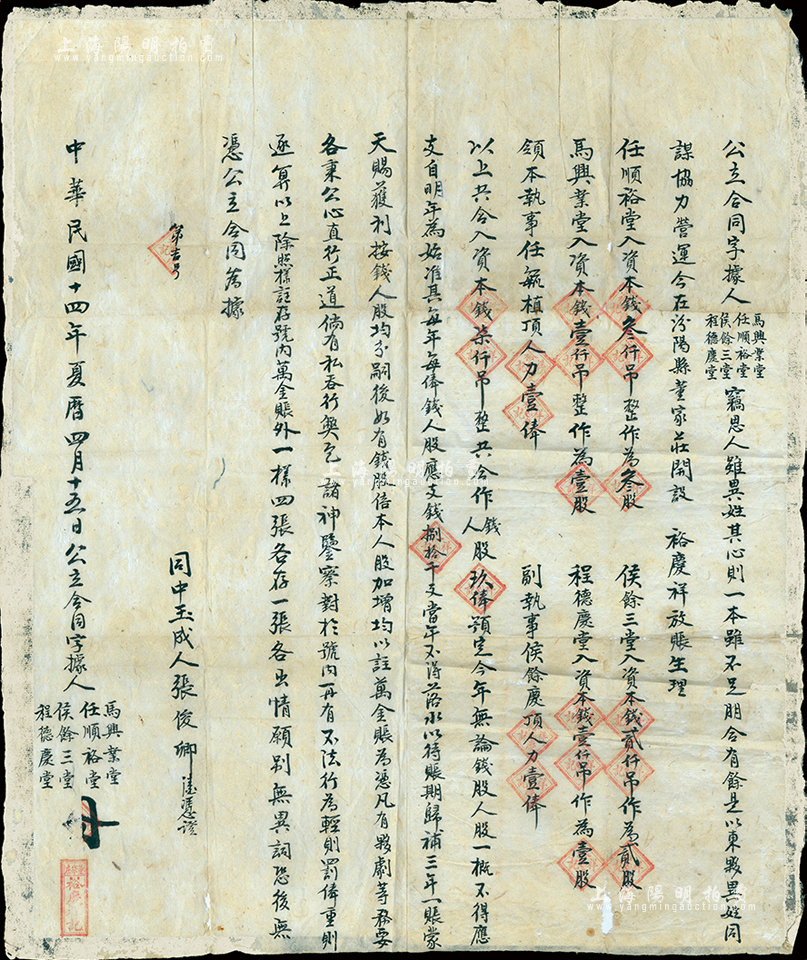 公立合同字據人
馬興業堂
任順裕堂
侯餘三堂
程德慶堂
竊思人雖異姓其心則一本雖不足朋合有餘是以東夥異姓同
謀協力營運今在汾陽縣董家莊開設 裕慶祥放賬生理
任順裕堂入資本錢叁仟吊整作為叁股 侯餘三堂入資本錢貳仟吊作為貳股
馬興業堂入資本錢壹仟吊整作為壹股 程德慶堂入資本錢壹仟吊作為壹股
領本執事任毓植頂人力壹俸 副執事侯餘慶頂人力壹俸
以上共合入資本錢柒仟吊整共合作錢人股玖俸 定今年無論錢股人股一概不得應
支自明年為始准其每年每俸錢人股應支錢捌拾千文當年不得 水以待賬期歸補三年一賬蒙
天賜獲利按錢人股均分嗣後如有錢股倍本人股加增均以註萬金賬為憑凡有夥劇等務要
各秉公心直行正道倘有私吞行奧乞諸神鑒察對於號內一再有不法行為輕則罰俸重則
逐算以上除照樣註存號內萬金賬外一樣四張各存一張各出情願別無異詞恐後無
憑公立合同為據
第 號
同中玉成人張俊卿 憑證
中華民國十四年夏曆四月十五日公立合同字據人
馬興業堂
任順裕堂
侯餘三堂
程德慶堂
上海陽明拍賣
www.yangmingauction.com
上海陽明拍賣
www.yangmingauction.com
上海陽明拍賣
www.yangmingauction.com